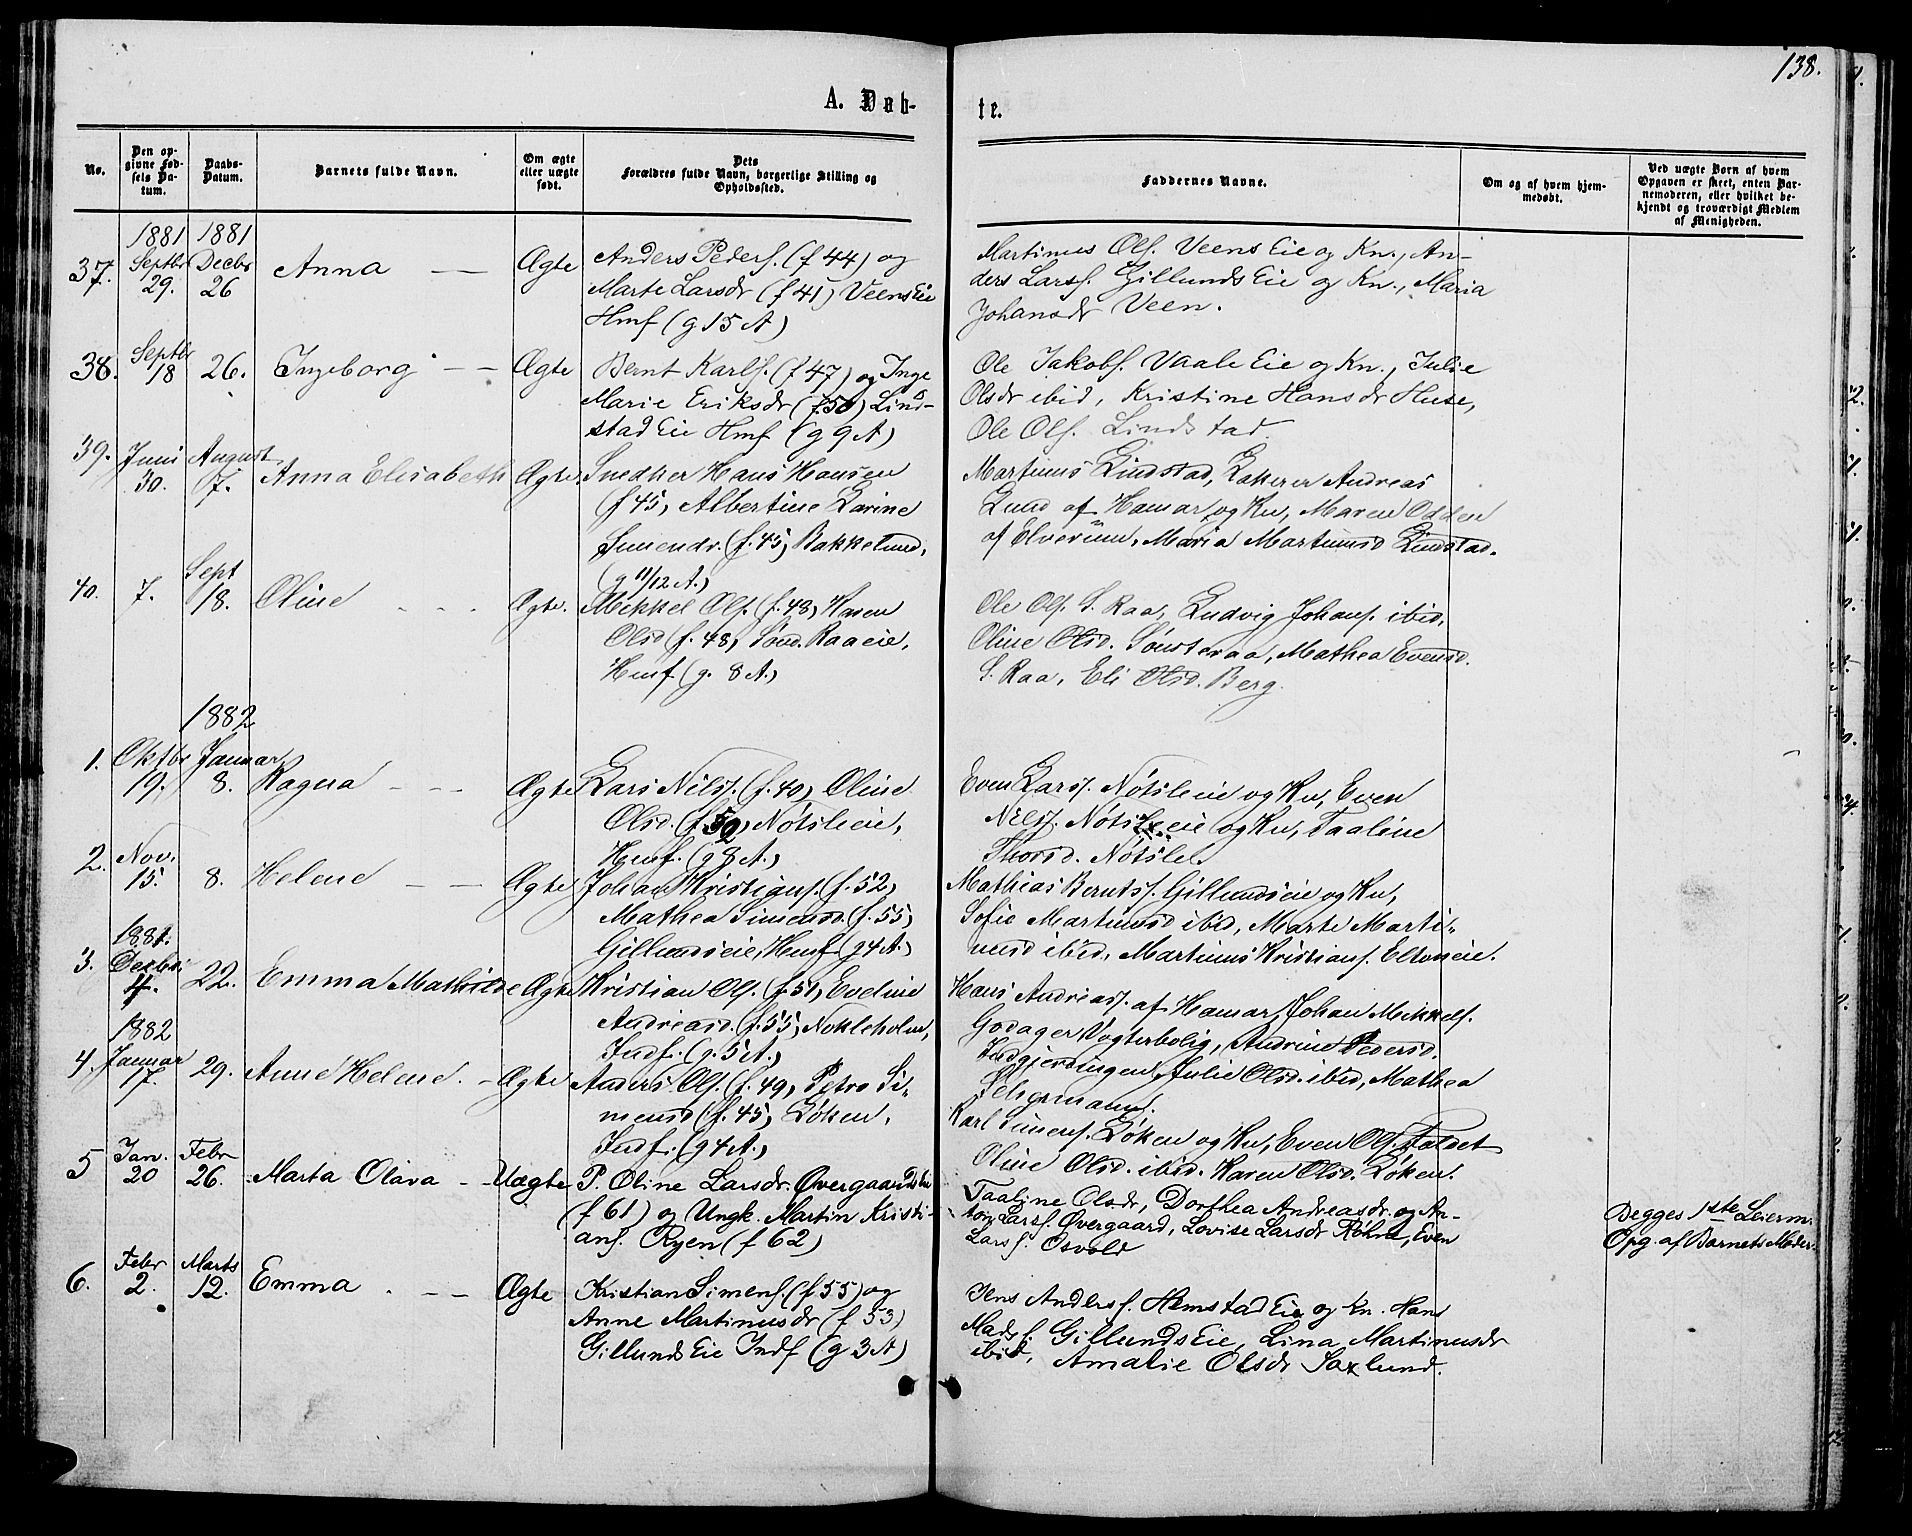 138.
A. Døb-
te.
No.
Den op-
givne Fød-
sels Da-
tum.
Daabs-
Datum.
Barnets fulde Navn.
Om ægte
eller uægte
født.
Dets
Forældres fulde Navn, borgerlige Stilling og
Opholdssted.
Faddernes Navne.
Om og af hvem hjem-
medøbt.
Ved uægte Børn af hvem
Opgaven er skeet, enten Bar-
nemoderen, eller hvilket be-
kjendt og troværdigt Medlem
af Menigheden.
1881 1881
37. Septbr 29. Decbr 26 Anna Ægte
Anders Peders. (f 44) og
Marte Larsdr (f 41) Veens Eie
Hmf (g 15 A)
Martinus Ols. Veens Eie og Kn., An-
ders Larss. Gillunds Eie og Kn., Maria
Johansdr Veen.
38. Septbr 18 26. Ingeborg Ægte
Bernt Karls. (f 47) og Inge
Marie Eriksdr (f 50) Lind-
stad Eie Hmf (g 9 A)
Ole Jakobs. Vaale Eie og Kn., Julie
Olsdr ibid, Kristine Hansdr Huse,
Ole Ols. Lindstad
39. Juni 30. August 7. Anna Elisabeth Ægte.
Snedker Hans Hansen
(f 45, Albertine Larine
Simensdr. (f. 45, Bakkelund,
(g 11/12 A.)
Martinus Lindstad, Lakerer Andreas
Lund af Hamar og Kn, Maren Odden
af Elverum, Maria Martinusd Lindstad.
40. 7. Sept 18. Oline Ægte.
Mikkel Ols. (f. 48, Karen
Olsd (f. 48, Sønd. Raaeie,
Hmf. (g. 8 A.)
Ole Ols. S. Raa, Ludvig Johans. ibid.
Oline Olsd. Sønsteraa, Mathea Evensd.
S. Raa, Eli Olsd. Berg.
1882
1. Oktbr 19. Januar 8. Ragna Ægte
Lars Nilss. (f. 40, Oline
Olsd. (f. 50, Nøtsleeie,
Hmf. (g 8 A.)
Even Larss. Nøtsleeie og Kn, Even
Nilss. Nøtsleeie og Kn, Taaline
Thorsd. Nøtsle.
2. Nov. 15. 8. Helene Ægte
Johan Kristians. (f. 52,
Mathea Simensd. (f. 55,
Gillundseie, Hmf. (g 4 A.)
Mathias Bernts. Gillundseie og Kn,
Sofie Martinusd ibid, Marte Marti-
nusd ibid, Martinus Kristians. Eltoneie.
1881.
3. Decbr 4. 22. Emma Mathilde Ægte
Kristian Ols. (f. 51, Eveline
Andreasd. (f. 55, Nokleholm,
Indf. (g. 5 A.)
Hans Andreass. af Hamar, Johan Mikkels.
Godager Vogterbolig, Andrine Pedersd.
Indgjerdingen, Julie Olsd. ibid, Mathea
1882
4. Januar 17. 29. Anne Helene. Ægte
Anders Ols. (f. 49, Petra Si-
mensd (f. 45, Løken,
Indf. (g 4 A.)
Karl Simens. Løken og Kn, Even Ols. Faldet
Oline Olsd. ibid. Karen Olsd. Løken.
5 Jan. 20 Febr 26. Marta Olava Uægte
P. Oline Larsdr. Øvergaard
(f 61) og Ungk. Martin Kristi-
ans. Ryen (f 62)
Taaline Olsdr, Dorthea Andreasdr. og An-
ton Larss. Øvergaard, Lovise Larsdr Røhne, Even
Larss. Osvold
Begges 1ste Leierm.
Opg. af Barnets Moder.
6. Febr 2. Marts 12. Emma Ægte
Kristian Simens. (f 55) og
Anne Martinusdr (f 53)
Gillunds Eie Indf (g 3 A)
Jens Anderss. Hemstad Eie og Kn. Hans
Mads. Gillunds Eie, Lina Martinusdr
ibid, Amalie Olsdr Saxlund.